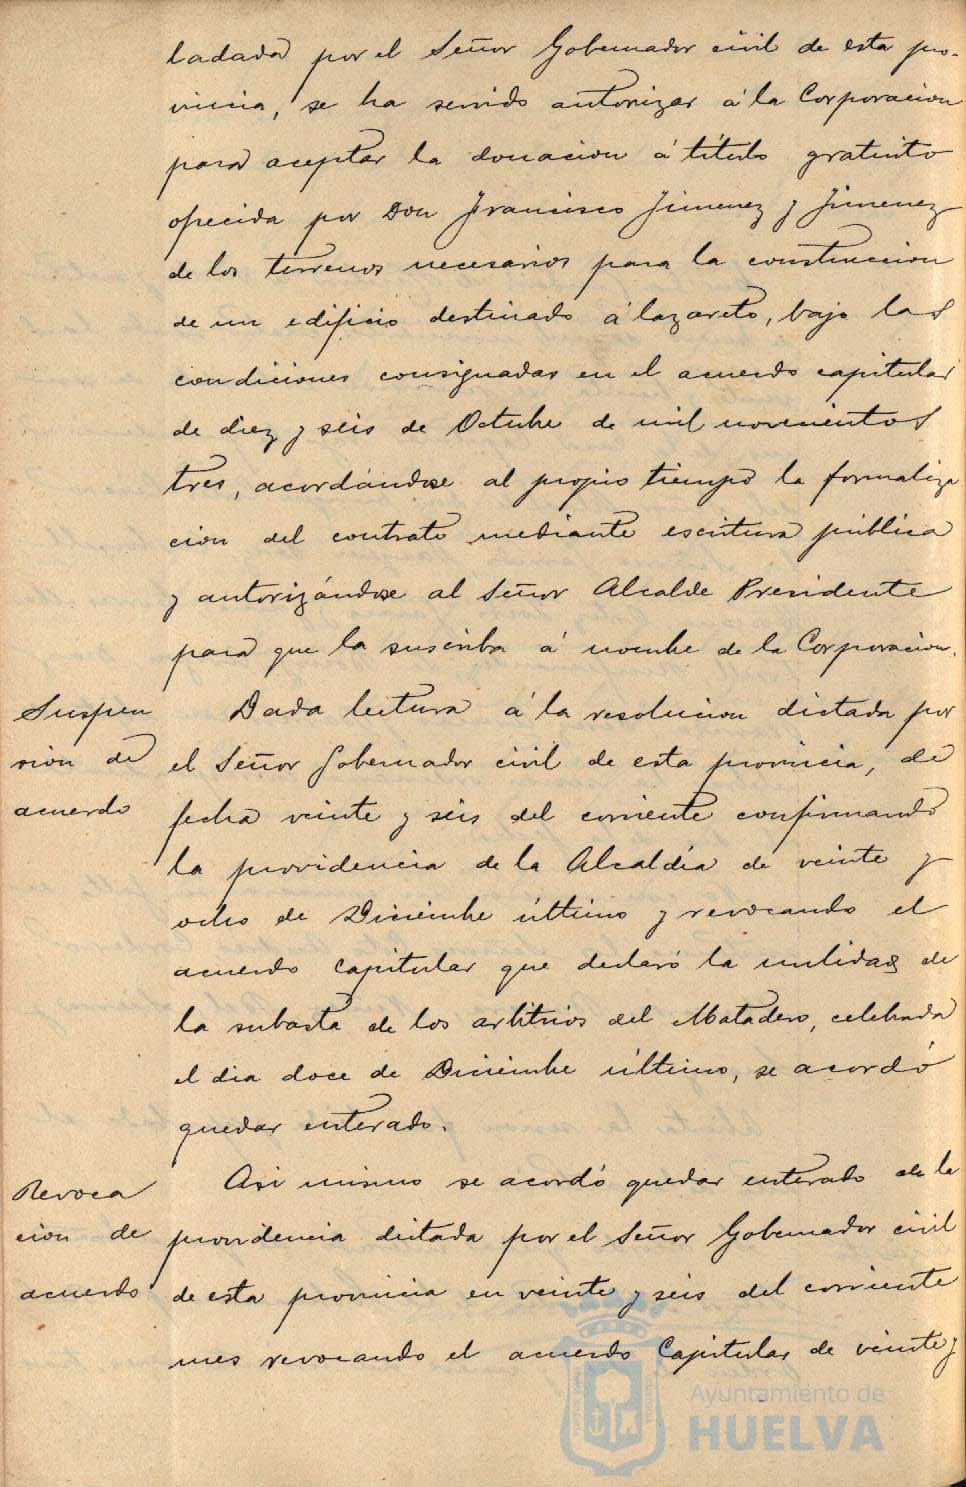 ladada por el Señor Gobernador civil de esta pro-
vincia, se ha servido autorizar á la Corporacion
para aceptar la donacion á título gratuito
ofrecida por Don Francisco Jimenez y Jimenez
de los terrenos necesarios para la construccion
de un edificio destinado á lazareto, bajo las
condiciones consignadas en el acuerdo capitular
de diez y seis de Octubre de mil novecientos
tres, acordándose al propio tiempo la formaliza
cion del contrato mediante escritura pública
y autorizándose al Señor Alcalde Presidente
para que la suscriba á nombre de la Corporacion.
Suspen
sion de
acuerdo
Dada lectura á la resolucion dictada por
el Señor Gobernador civil de esta provincia, de
fecha veinte y seis del corriente confirmando
la providencia de la Alcaldía de veinte y
ocho de Diciembre último y revocando el
acuerdo capitular que declaró la nulidad de
la subasta de los arbitrios del Matadero, celebrada
el dia doce de Diciembre último, se acordó
quedar enterado.
Revoca
cion de
acuerdo
Asi mismo se acordó quedar enterado de la
providencia dictada por el Señor Gobernador civil
de esta provincia en veinte y seis del corriente
mes revocando el acuerdo Capitular de veinte y
PORTUS MARIS
CUSTODIA
Ayuntamiento de
HUELVA